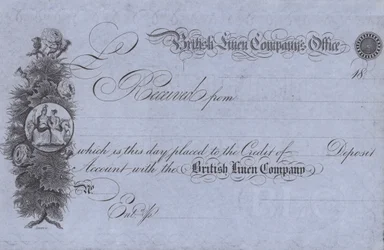 £
British Linen Company's Office
18
Received from
which is this day placed to the Credit of Deposit
Account with the British Linen Company
No
Entd.